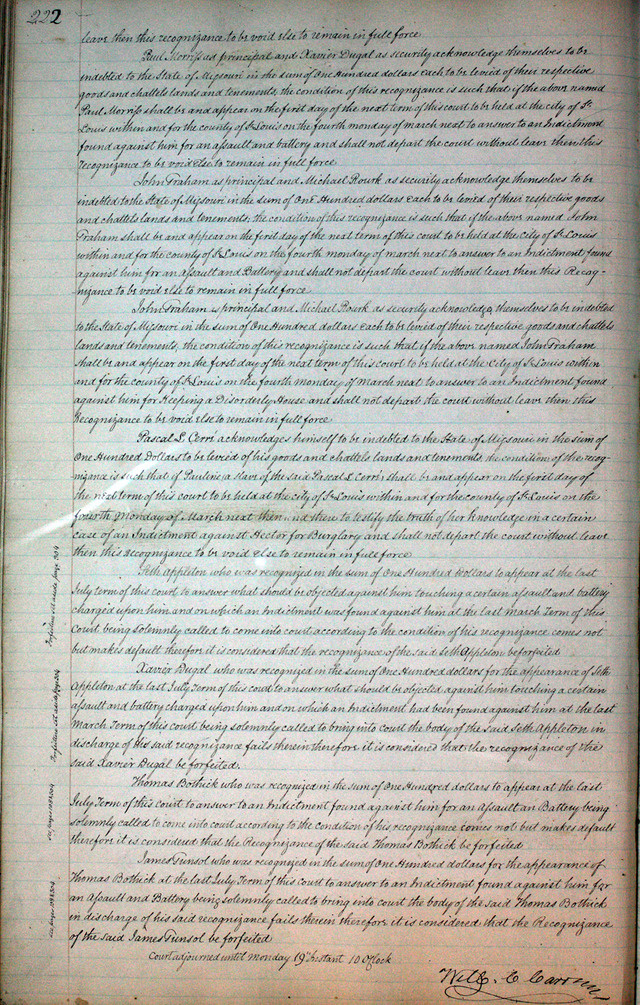 222
leave then this recognizance to be void else to remain in full force
Paul Morriss as principal and Xavier Dugal as security acknowledge themselves to be
indebted to the State of Missouri in the sum of One Hundred dollars each to be levied of their respective
goods and chattels lands and tenements, the condition of this recognizance is such that if the above named
Paul Morriss shall be and appear on the first day of the next term of this court to be held at the city of St
Louis within and for the county of St Louis on the fourth monday of march next to answer to an Indictment
found against him for an assault and battery and shall not depart the court without leave then this
recognizance to be void Else to remain in full force
John Graham as principal and Michael Rourk as security acknowledge themselves to be
indebted to the State of Missouri in the sum of One Hundred dollars Each to be levied of their respective goods
and chattels lands and tenements, the condition of this recognizance is such that if the above named John
Graham shall be and appear on the first day of the next term of this court to be held at the City of St Louis
within and for the county of St Louis on the fourth monday of march next to answer to an Indictment found
against him for an Assault and Battery and shall not depart the court without leave then this Recog-
nizance to be void else to remain in full force
John Graham as principal and Michael Rourk as security acknowledge themselves to be indebted
to the State of Missouri in the sum of One Hundred dollars each to be levied of their respective goods and chattels
lands and tenements, the condition of this recognizance is such that if the above named John Graham
shall be and appear on the first day of the next term of this court to be held at the City of St Louis within
and for the county of St Louis on the fourth monday of March next to answer to an Indictment found
against him for Keeping a Disorderly House and shall not depart the court without leave then this
Recognizance to be void else to remain in full force
Pascal L Cerré acknowledges himself to be indebted to the State of Missouri in the sum of
One Hundred Dollars to be levied of his goods and chattels lands and tenements, the condition of the recog-
nizance is such that if Pauline a slave of the said Pascal L Cerré shall be and appear on the first day of
the next term of this court to be held at the city of St Louis within and for the county of St Louis on the
fourth Monday of March next then and there to testify the truth of her knowledge in a certain
case of an Indictment against Hector for Burglary and shall not depart the court without leave
then this recognizance to be void Else to remain in full force
Seth Appleton who was recognized in the sum of One Hundred Dollars to appear at the last
July term of this court to answer what should be objected against him touching a certain assault and battery
charged upon him and on which an Indictment was found against him at the last March Term of this
Court being solemnly called to come into court according to the condition of his recognizance comes not
but makes default therefore it is considered that the recognizance of the said Seth Appleton be forfeited
Xavier Dugal who was recognized in the sum of One Hundred dollars for the appearance of Seth
Appleton at the last July Term of this court to answer what should be objected against him touching a certain
assault and battery charged upon him and on which an Indictment had been found against him at the last
March Term of this court being solemnly called to bring into court the body of the said Seth Appleton in
discharge of his said recognizance fails therein therefore it is considered that the recognizance of the
said Xavier Dugal be forfeited.
Thomas Bothick who was recognized in the sum of One Hundred dollars to appear at the last
July Term of this court to answer to an Indictment found against him for an Assault an Battery being
solemnly called to come into court according to the condition of his recognizance comes not but makes default
therefore it is considered that the Recognizance of the said Thomas Bothick be forfeited
James Tunsol who was recognized in the sum of One Hundred dollars for the appearance of
Thomas Bothick at the last July Term of this court to answer to an Indictment found against him for
an Assault and Battery being solemnly called to bring into court the body of the said Thomas Bothick
in discharge of his said recognizance fails therein therefore it is considered that the Recognizance
of the said James Tunsol be forfeited
Court adjourned until Monday 19th Instant 10 OClock
Will. C Carr